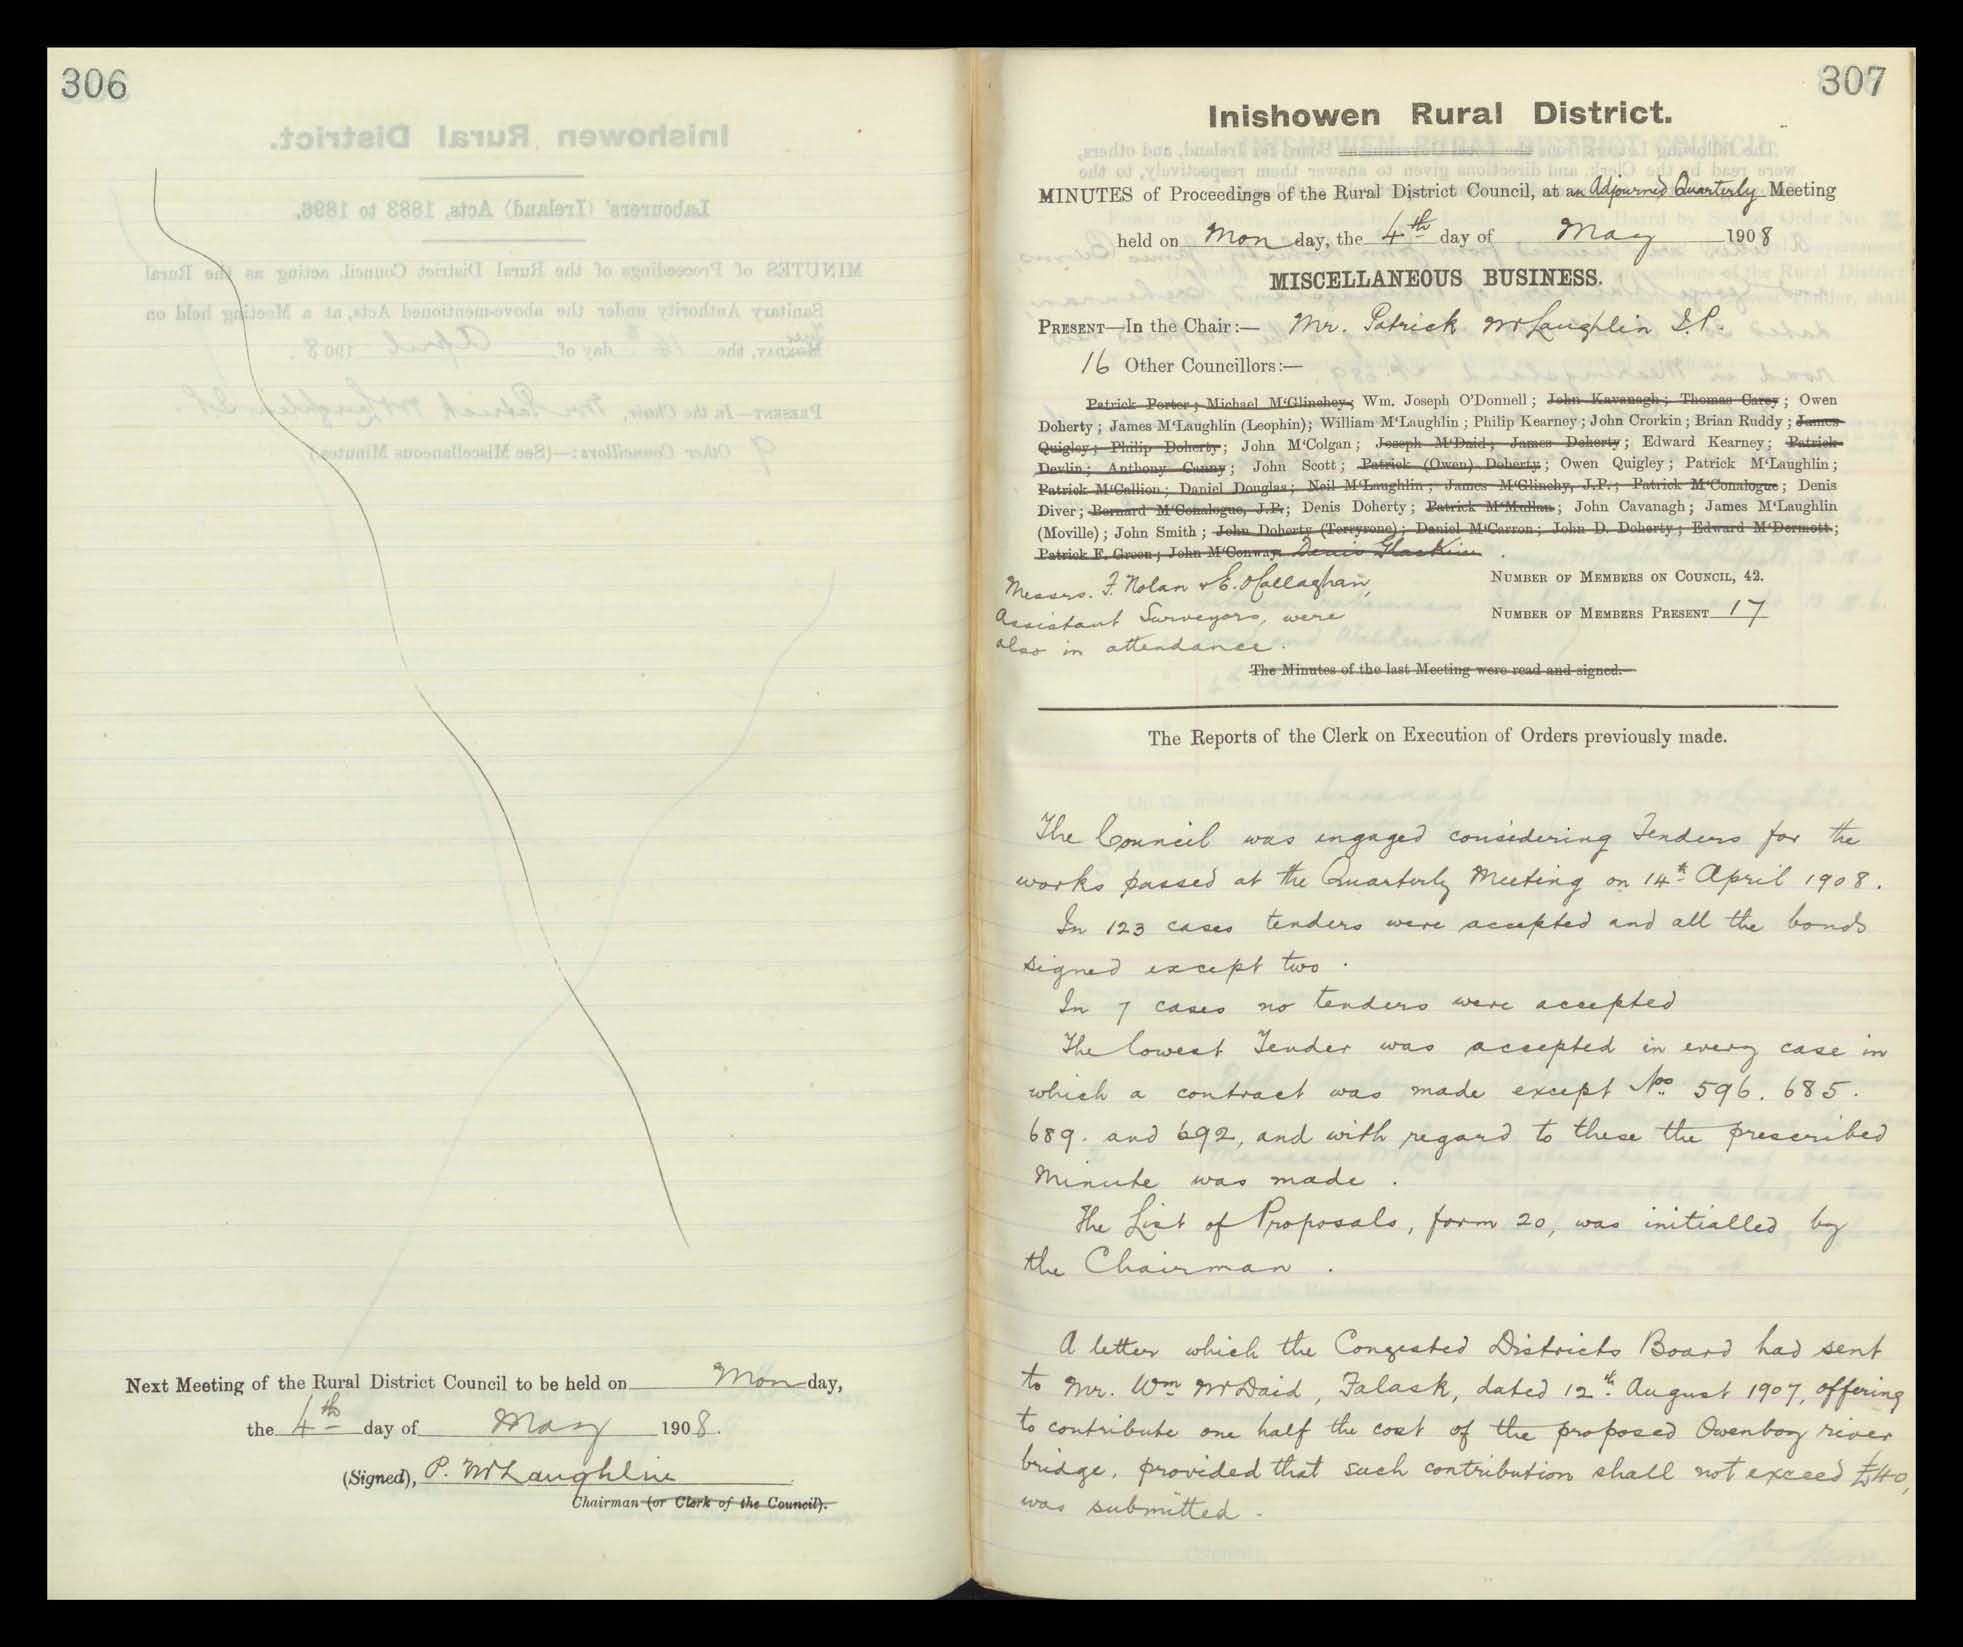 306
Next Meeting of the Rural District Council to be held on Monday,
the 4th day of May 1908.
(Signed), P. McLaughlin
Chairman (or Clerk of the Council).
307
Inishowen Rural District.
MINUTES of Proceedings of the Rural District Council, at an Adjourned Quarterly Meeting
held on Monday, the 4th day of May 1908
MISCELLANEOUS BUSINESS.
PRESENT—In the Chair:— Mr. Patrick McLaughlin J.P.
16 Other Councillors:—
Patrick Porter; Michael M'Glinchey; Wm. Joseph O'Donnell; John Kavanagh; Thomas Carey; Owen
Doherty; James M'Laughlin (Leophin); William M'Laughlin; Philip Kearney; John Crorkin; Brian Ruddy; James
Quigley; Philip Doherty; John M'Colgan; Joseph M'Daid; James Doherty; Edward Kearney; Patrick
Devlin; Anthony Canny; John Scott; Patrick (Owen) Doherty; Owen Quigley; Patrick M'Laughlin;
Patrick M'Callion; Daniel Douglas; Neil M'Laughlin; James M'Glinchy, J.P.; Patrick M'Conalogue; Denis
Diver; Bernard M'Conalogue, J.P.; Denis Doherty; Patrick M'Mullan; John Cavanagh; James M'Laughlin
(Moville); John Smith; John Doherty (Terryrone); Daniel M'Carron; John D. Doherty; Edward M'Dermott;
Patrick F. Green; John M'Conway. Denis Glackin
Messrs. F. Nolan & E. O'Callaghan,
Assistant Surveyors, were
also in attendance.
NUMBER OF MEMBERS ON COUNCIL, 42.
NUMBER OF MEMBERS PRESENT 17
The Minutes of the last Meeting were read and signed.
The Reports of the Clerk on Execution of Orders previously made.
The Council was engaged considering Tenders for the
works passed at the Quarterly Meeting on 14th April 1908.
In 123 cases tenders were accepted and all the bonds
signed except two.
In 7 cases no tenders were accepted
The lowest Tender was accepted in every case in
which a contract was made except Nos 596. 685.
689. and 692, and with regard to these the prescribed
Minute was made.
The List of Proposals, form 20, was initialled by
the Chairman.
A letter which the Congested Districts Board had sent
to Mr. Wm McDaid, Falask, dated 12th August 1907, offering
to contribute one half the cost of the proposed Owenboy river
bridge, provided that such contribution shall not exceed £40,
was submitted.